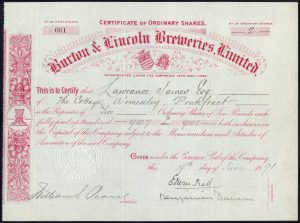 No OF CERTIFICATE.
CERTIFICATE OF ORDINARY SHARES.
No OF ORDINARY SHARES.
661
2
Burton & Lincoln Breweries, Limited
INCORPORATED UNDER THE COMPANIES ACTS, 1862
This is to Certify that Lawrance James Esq
of The Cottage Womersley, Pontefract
is the Proprietor of Two Ordinary Shares of Ten Pounds each
fully paid up numbered 9107 to 9108 both inclusive in
the Capital of the Company subject to the Memorandum and Articles of
Association of the said Company.
Given under the Common Seal of the Company
this 9th day of June 1891